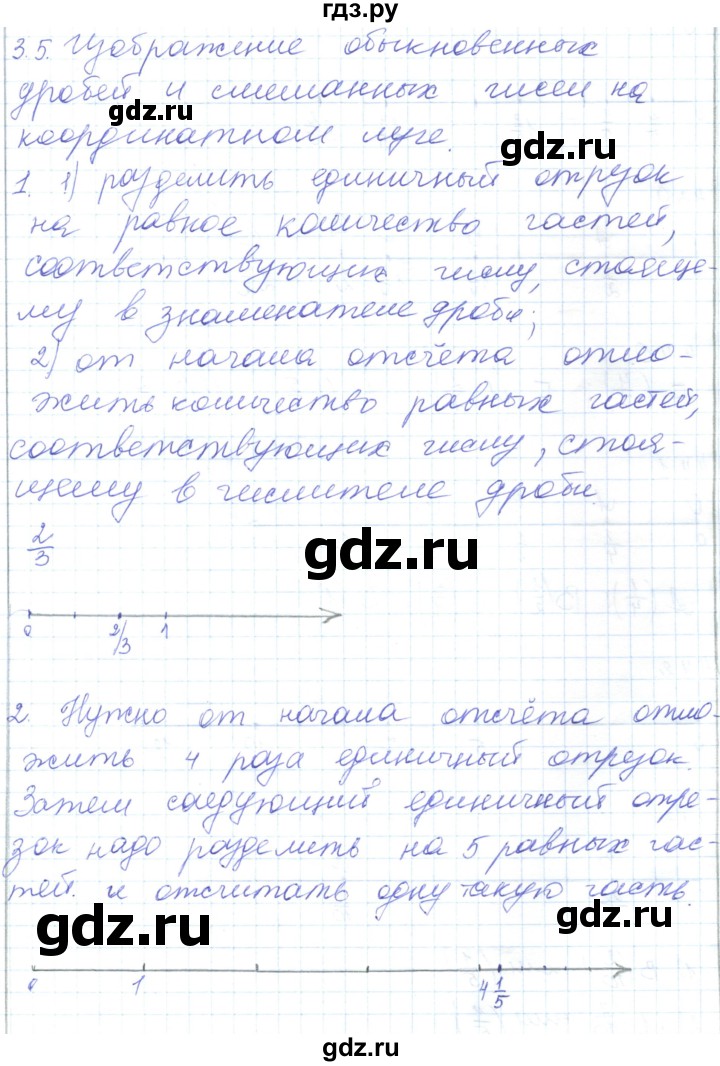 гдз.ру
3.5. Изображение обыкновенных
дробей и смешанных чисел на
координатном луче.
1. 1) разделить единичный отрезок
на равное количество частей,
соответствующих числу, стояще-
му в знаменателе дроби;
2) от начала отсчёта отло-
жить количество равных частей,
соответствующих числу, стоя-
щему в числителе дроби.
2/3
0 2/3 1
2. Нужно от начала отсчёта отло-
жить 4 раза единичный отрезок.
Затем следующий единичный отре-
зок надо разделить на 5 равных час-
тей и отсчитать одну такую часть.
0 1 4 1/5
gdz.ru
gdz.ru
gdz.ru
gdz.ru
gdz.ru
gdz.ru